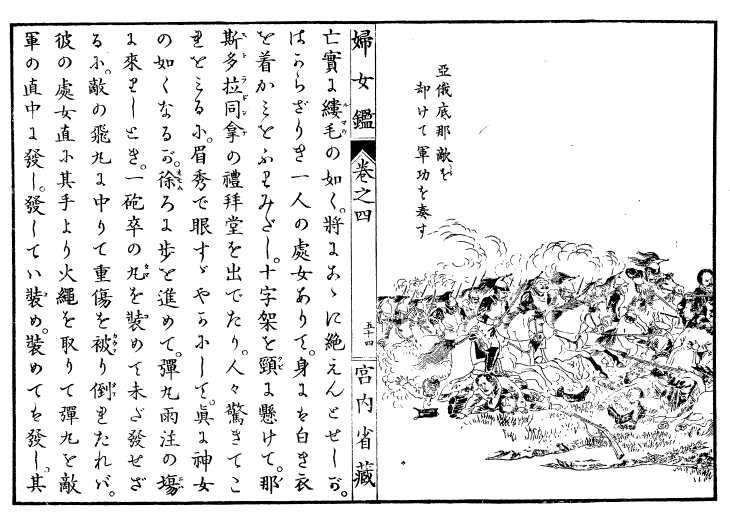 亞俄底那敵を
却けて軍功を奏す
婦女鑑
卷之四
五十四
宮内省藏
亡實に縷毛の如く。將にあゝに絶えんとせしが。
はからざりき一人の處女ありて。身には白き衣
を着かミをふりみだし。十字架を頸に懸けて。那
斯多拉同拿の禮拜堂を出でたり。人々驚きてこ
れをミるに。眉秀で眼すゞやかにして。眞に神女
の如くなるが。徐ろに歩を進めて。彈丸雨注の塲
に來りしとき。一砲卒の丸を裝めて未だ發せざ
るに。敵の飛丸に中りて重傷を被り倒れたれバ。
彼の處女直に其手より火繩を取りて彈丸を敵
軍の直中に發し。發してハ裝め。裝めてを發し。其